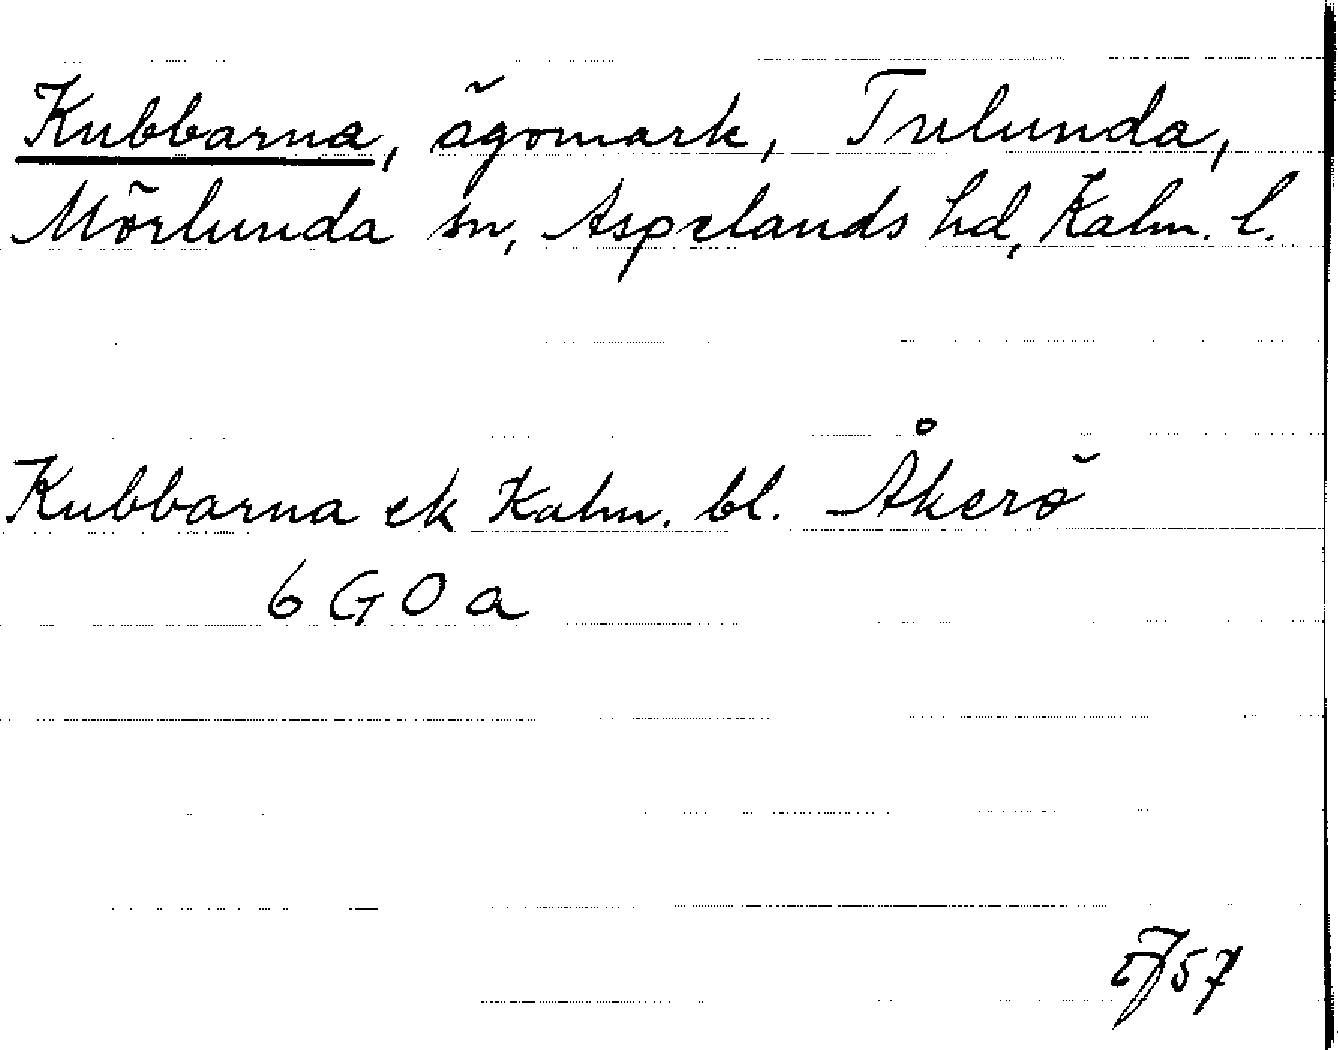 Kubbarna, ägomark, Tulunda,
Mörlunda sn, Aspelands hd, Kalm. l.
Kubbarna ek Kalm. bl. Åkerö
6 G 0 a
57